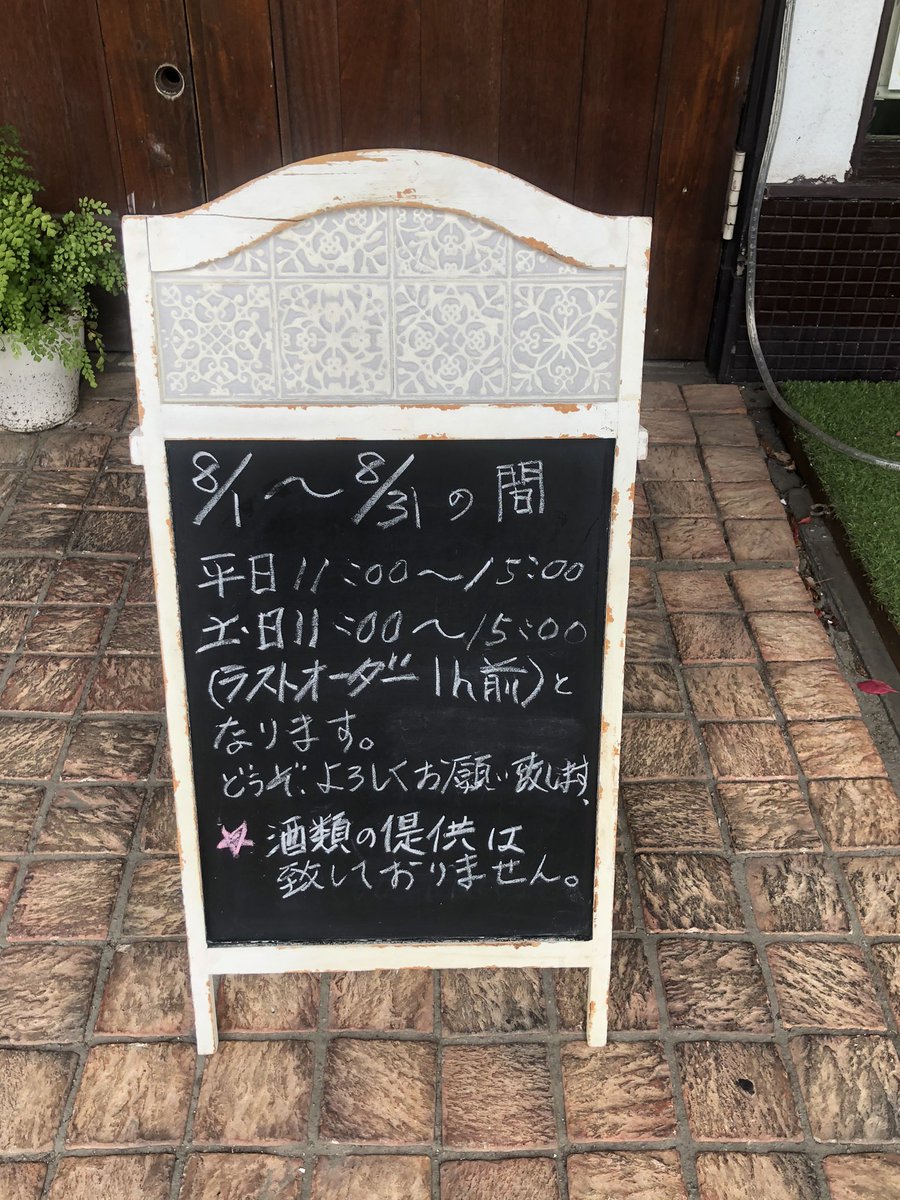 8/1～8/31の間
平日11:00～15:00
土日11:00～15:00
(ラストオーダー1h前)と
なります。
どうぞ、よろしくお願い致します、
☆酒類の提供は
致しておりません。